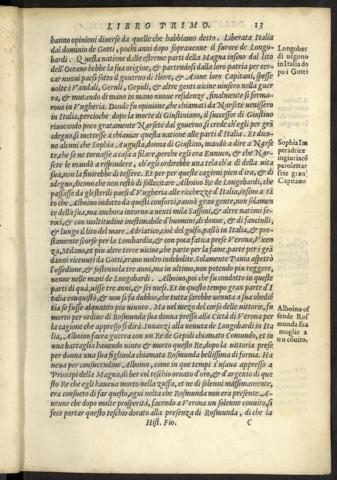 LIBRO PRIMO. 13
hanno opinioni diverse da quelle che habbiamo detto. Liberata Italia
dal dominio de Gotti, pochi anni dopo sopravenne il furore de Longo-
bardi. Questa natione dall'estreme parti della Magna insino dal lito
dell'Oceano hebbe la sua origine, & partendosi dalla patria per cer-
car nuovi paesi sotto il governo di &
volte i Vandali, Geruli, Gepidi, & altre genti vicine insero nella guer-
ra, & mutando di mano in mano nuove residenze, finalmente si ferma-
rono in Vngheria. Donde fu opinione, che chiamati da Narsete venissero
in Italia, percioche dopo la morte di Giustiniano, il successor di Giustino
rivocando poco gratamente Narsete dal governo, si crede ch'egli per grā
sdegno, si mettesse a chiamar questa natione alle parti d'Italia. Et dico-
no alcuni che Sophia Augusta, donna di Giustino, mandò a dire a Narse
te, che se ne tornasse a casa a filare, perche egli era Eunuco, & che Narse-
te le mandò a rispondere, ch'egli ordirebbe una tela ch'a dì della vita
sua, non la finirebbe di tessere. Et per
sdegno, dicono che non restò di sollecitare Alboino Re de Longobardi, che
passasse da gli sterili paesi d'Vngheria alle ricchezze d'Italia, insino a tā
to che Alboino indotto da questi conforti, raunò gran gente, non solamen-
te della sua, ma anchora intorno a venti mila Sassoni, & altre nationi fero-
ci, & con moltitudine inestimabile d'huomini, di donne, & di fanciulli,
& lungo il lito del mare Adriatico, cioè del golfo, passò in Italia, & pre-
stamente scorse per la Lombardia, & con poca fatica prese Verona, Vicen-
za, Milano, et piu altre terre vicine, che parte per la fame, parte per i grā
danni ricevuti da Gotti, erano molto indebolite. Solamente Pavia aspettò
l'ossedione, & sostennela tre anni, ma in ultimo, non potendo piu reggere,
venne nelle mani de Longobardi. Alboino, poi che fu condotto in queste
parti di quà, visse tre anni, & sei mesi. Et in questo tempo gran parte d'I
talia conquistò, & non si fa dubbio, che tutta sarebbe venuta a sua obedie
tia se fusse alquanto piu vivuto. Ma nel mezo del corso delle vittorie, fu
morto per ordine di Rosmunda sua donna presso alla Città di Verona per
la cagione che appresso si dirà. Innanzi alla venuta de Longobardi in Ita-
lia, Alboino facea guerra con un Re de Gepidi chiamato Comundo, et in
una battaglia havendo vinto & morto questo Re, dopo la vittoria prese
per donna una sua figliuola chiamata Rosmunda bellissima di forma. Ha
vea per consuetudine Alboino, come in que tempi s'usava appresso a
Principi della Magna, di ber col teschio ornato d'oro, & d'argento di que
sto Re che egli haveva morto nella zuffa, et ne dì solenni massimamente,
era consueto di far questo, ogni volta che Rosmunda non era presente. A-
venne che dopo molte prosperità, facendo a Verona un solenne convito, si
fece portar questo teschio dorato alla presenza di Rosmunda, di che la
Hist. Fio. C
Longobar
di vēgono
in Italia do
po i Gotti
Sophia Im
peradrice
ingiuriosa
parole Nar
sete gran
Capitano
Alboino of
fende Ros
munda sua
moglie a
un cōvito.